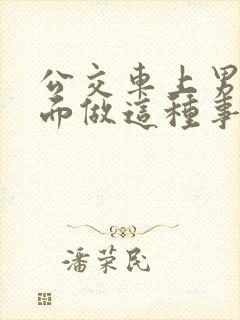 公交車上男
而做這種事
潘荣民